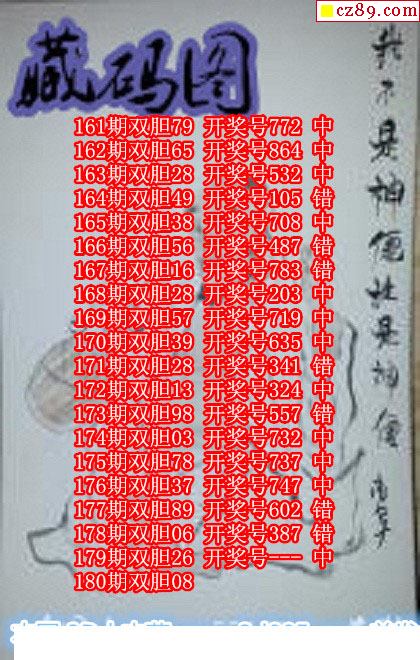 cz89.com
藏码图
161期双胆79 开奖号772 中
162期双胆65 开奖号864 中
163期双胆28 开奖号532 中
164期双胆49 开奖号105 错
165期双胆38 开奖号708 中
166期双胆56 开奖号487 错
167期双胆16 开奖号783 错
168期双胆28 开奖号203 中
169期双胆57 开奖号719 中
170期双胆39 开奖号635 中
171期双胆28 开奖号341 错
172期双胆13 开奖号324 中
173期双胆98 开奖号557 错
174期双胆03 开奖号732 中
175期双胆78 开奖号737 中
176期双胆37 开奖号747 中
177期双胆89 开奖号602 错
178期双胆06 开奖号387 错
179期双胆26 开奖号--- 中
180期双胆08